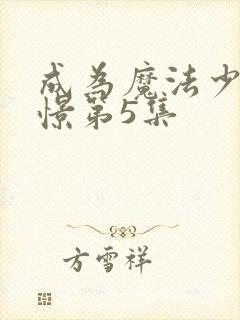 成为魔法少
憬第5集
方雪祥